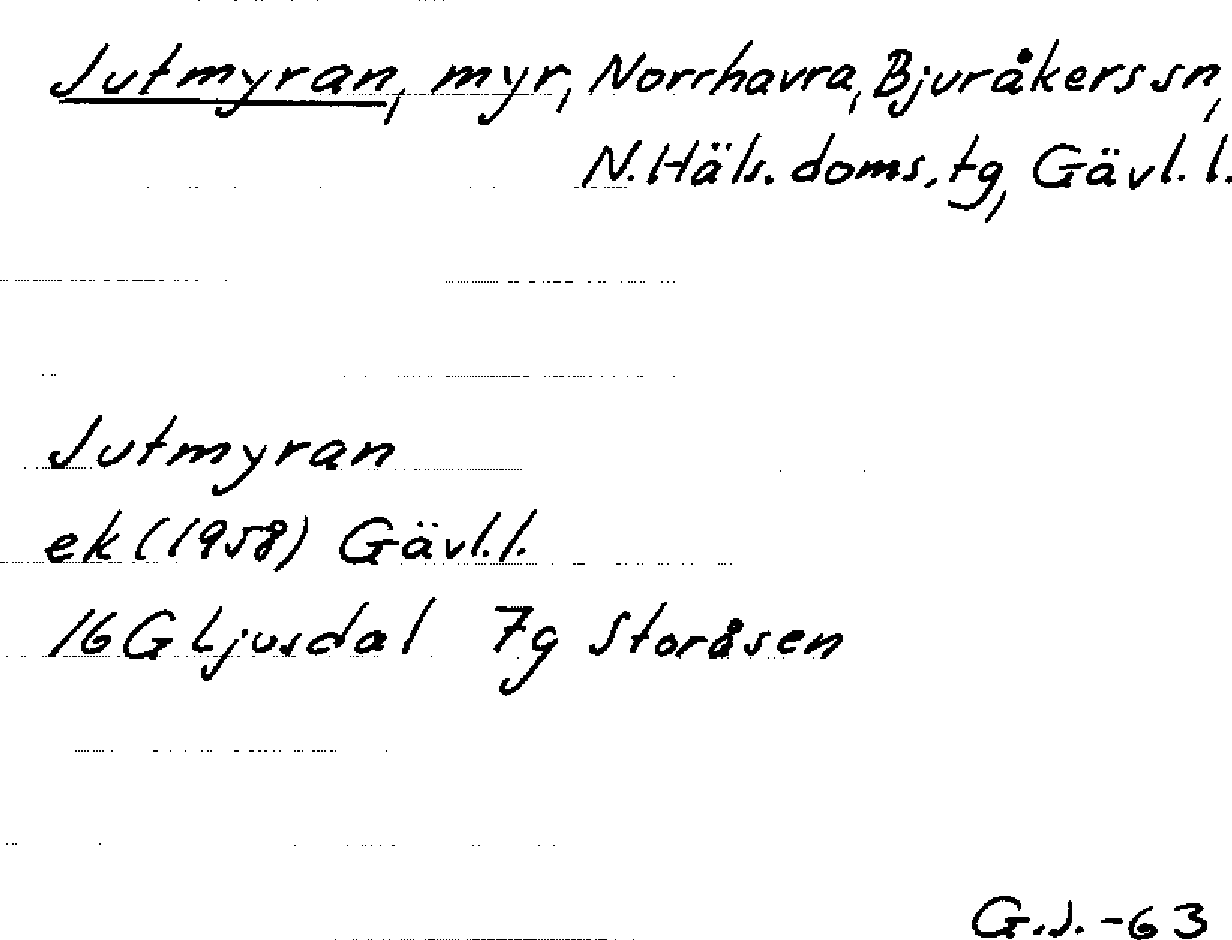 Jutmyran, myr, Norrhavra, Bjuråkers sn,
N. Häls. doms. tg, Gävl. l.
Jutmyran
ek (1958) Gävl. l.
16G Ljusdal 7g Storåsen
G.J. -63